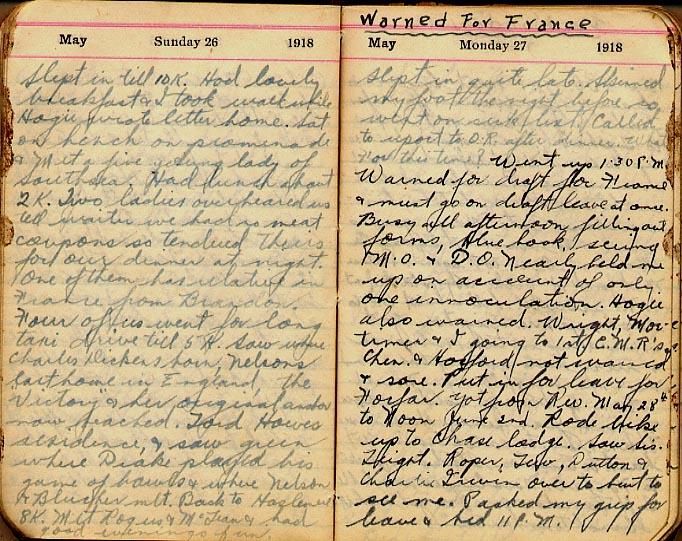 May Sunday 26 1918
Slept in till 10 K. Had lovely
breakfast & I took walk while
Hogie wrote letter home. Sat
on bench on promenade
& Met a fine young lady of
Southsea. Had lunch about
2 K. Two ladies overheared us
tell waiter we had no meat
coupons so tendered theirs
for our dinner at night.
One of them has relatives in
France from Brandon.
Four of us went for long
taxi drive till 5 K. Saw where
Charles Dickens born, Nelsons
last home in England, The
Victory & her original anchor
now beached. Lord Howes
residence, & saw green
where Drake played his
game of bowls & where Nelson
& Blucher met. Back to Hazlemere
8 K. Met Rogers & McLean & had
good evenings fun.
Warned For France
May Monday 27 1918
Slept in quite late. Skinned
my foot the night before so
went on sick list. Called
to report to O.R. after dinner. What
For this time? Went up 1:30 P.M.
Warned for draft for France
& must go on draft leave at once.
Busy all afternoon filling out
forms, blue book, seeing
M.O. & D.O. Nearly held me
up on account of only
one innoculation. Hogie
also warned. Wright, Mortimer
& I going to 1st C.M.R's
& Hosford not warned
& sore. Put in for leave for
Forfar. Got from Rev. May 28th
to Noon June 2nd. Rode bike
up to Chase lodge. Saw sis.
Knight. Roper, Dutton &
Charlie Irwin over to hut to
see me. Packed my grip for
leave & bed 11 P.M.